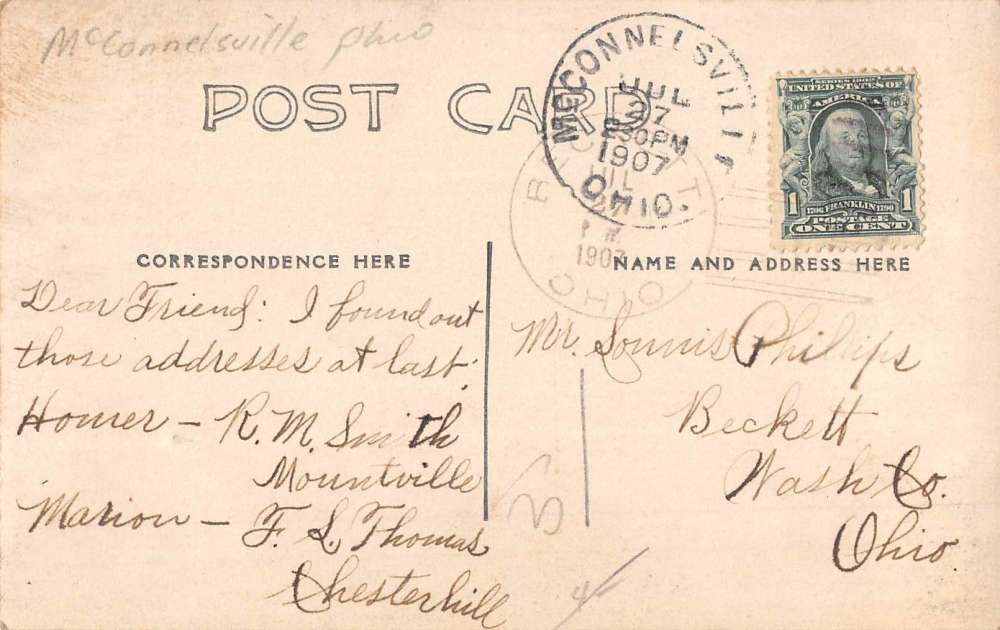 McConnelsville Ohio
POST CARD
McCONNELSVILL
JUL
27
230PM
1907
OHIO.
BECKETT
JUL
1907
OHIO
SERIES 1902
UNITED STATES OF
AMERICA
1706 FRANKLIN 1790
1 POSTAGE 1
ONE CENT
CORRESPONDENCE HERE
Dear Friend: I found out
those addresses at last.
Homer – R. M. Smith
Mountville
Marion – F. L. Thomas
Chesterhill
NAME AND ADDRESS HERE
Mr. Phillips
Beckett
Wash Co.
Ohio